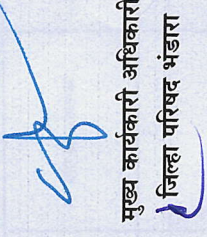 मुख्य कार्यकारी अधिकारी
जिल्हा परिषद भंडारा